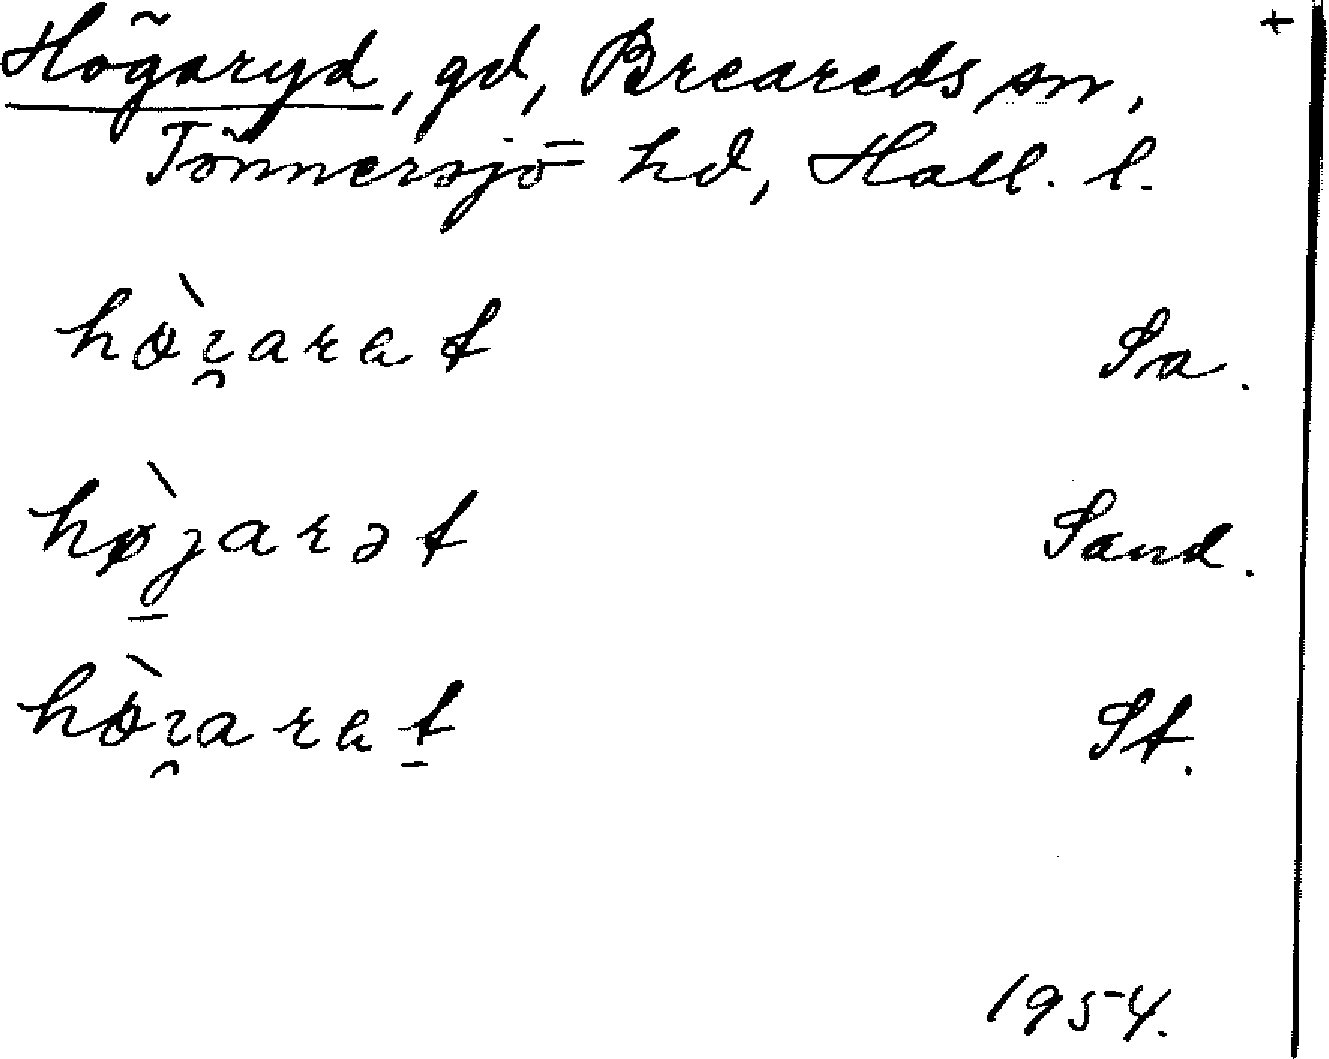 +
Högaryd, gd, Breareds sn,
Tönnersjö hd, Hall. l.
hø̀ɪ̯arat Sa.
hø̀jarət Sand.
hø̀ɪ̯arat St.
1954.